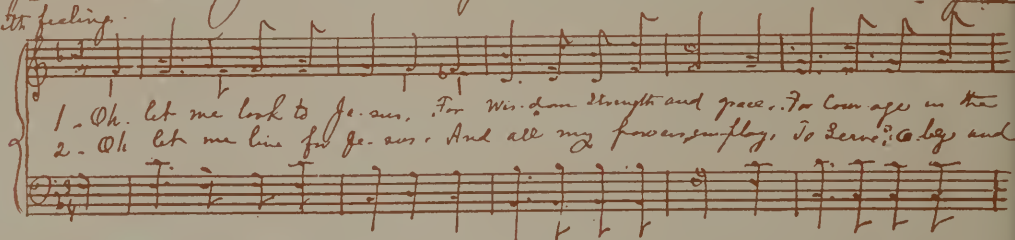 ith feeling.
1 - Oh. let me look to Je-sus, For wis-dom strength and grace, For Cour-age in the
2 - Oh let me live for Je-sus, And all my powers employ, To Serve, O-bey and